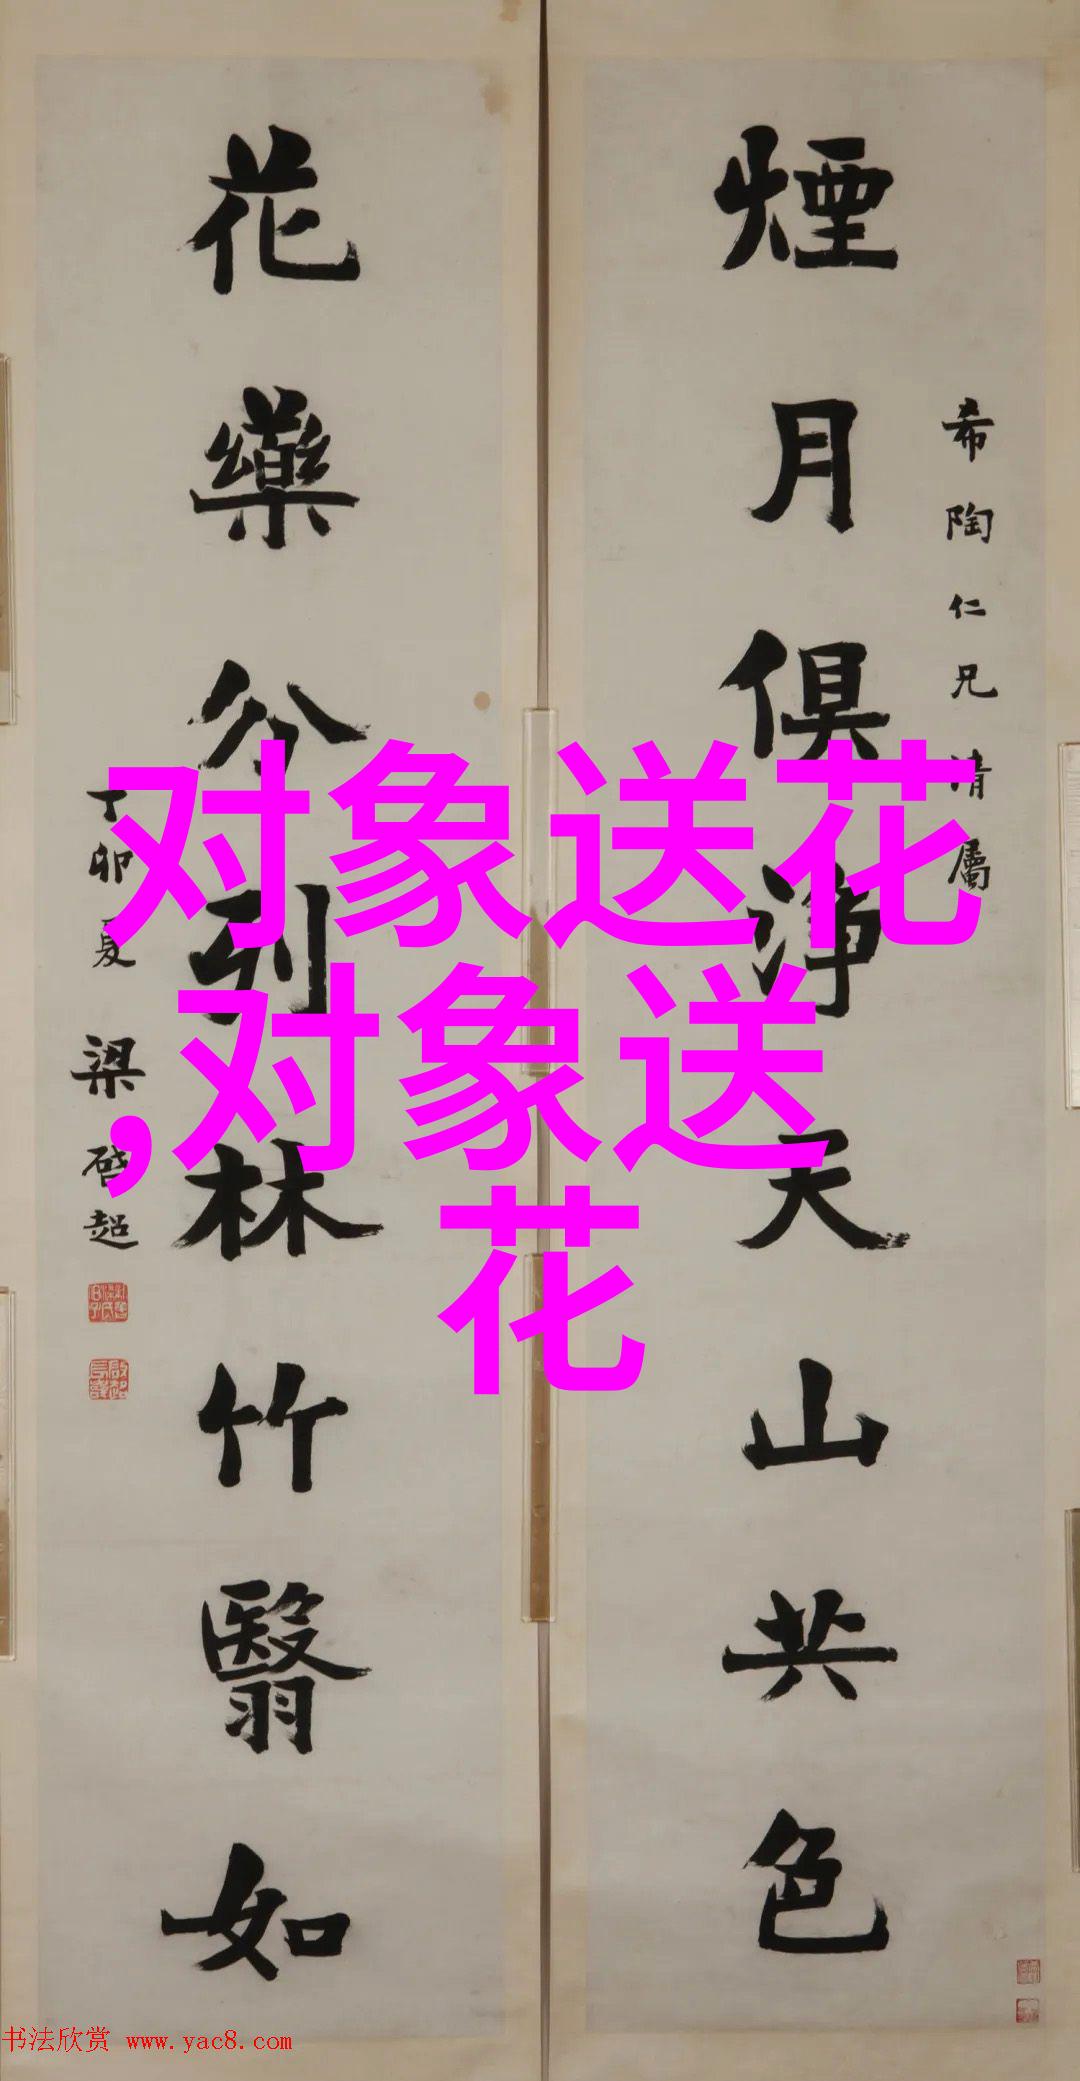 煙月俱淨天山共色
希陶仁兄清屬
花藥分列林竹翳如
丁卯夏 梁啓超
对象送花
,对象送
花
书法欣赏 www.yac8.com